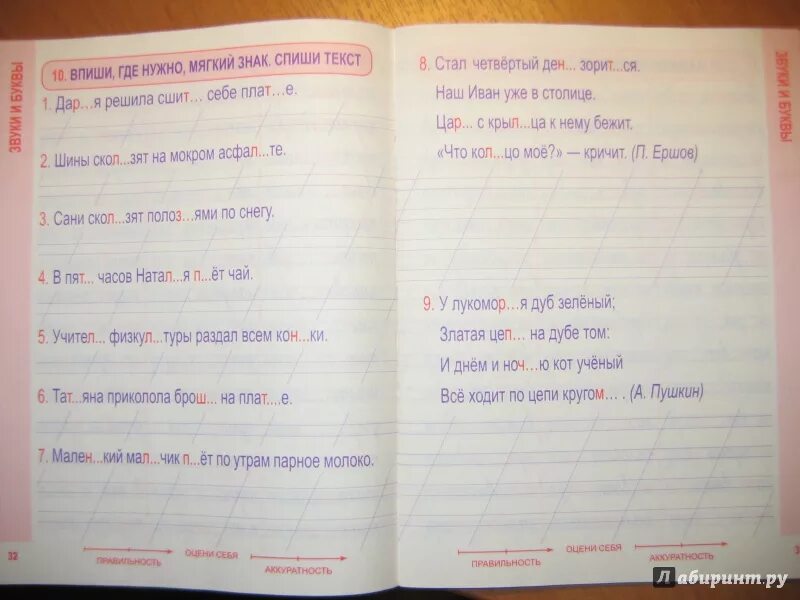 ЗВУКИ И БУКВЫ
10. ВПИШИ, ГДЕ НУЖНО, МЯГКИЙ ЗНАК. СПИШИ ТЕКСТ
1. Дар…я решила сшит… себе плат…е.
2. Шины скол…зят на мокром асфал…те.
3. Сани скол…зят полоз…ями по снегу.
4. В пят… часов Натал…я п…ёт чай.
5. Учител… физкул…туры раздал всем кон…ки.
6. Тат…яна приколола брош… на плат…е.
7. Мален…кий мал…чик п…ёт по утрам парное молоко.
32
ПРАВИЛЬНОСТЬ
ОЦЕНИ СЕБЯ
АККУРАТНОСТЬ
8. Стал четвёртый ден… зорит…ся.
Наш Иван уже в столице.
Цар… с крыл…ца к нему бежит.
«Что кол…цо моё?» — кричит. (П. Ершов)
9. У лукомор…я дуб зелёный;
Златая цеп… на дубе том:
И днём и ноч…ю кот учёный
Всё ходит по цепи кругом… . (А. Пушкин)
ЗВУКИ И БУКВЫ
ПРАВИЛЬНОСТЬ
ОЦЕНИ СЕБЯ
АККУРАТНОСТЬ
Лабиринт.ру